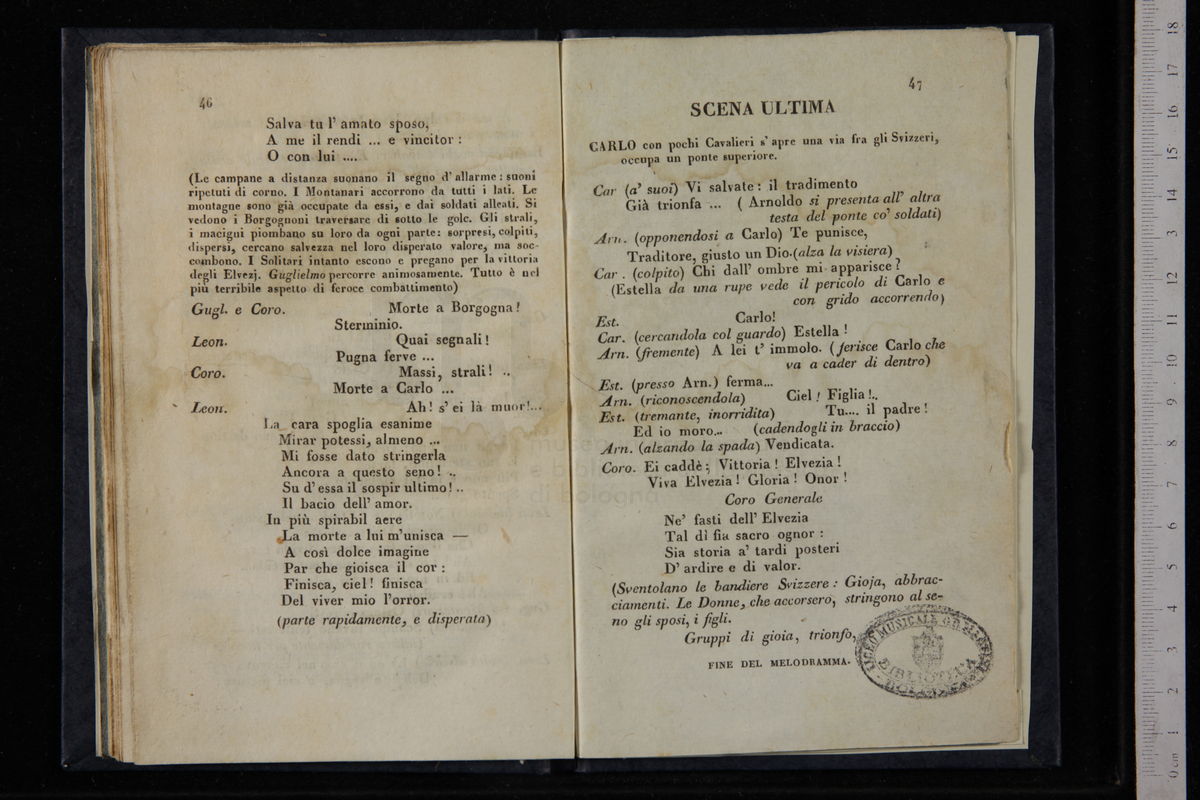 46
Salva tu l' amato sposo,
A me il rendi ... e vincitor :
O con lui ....
(Le campane a distanza suonano il segno d' allarme : suoni
ripetuti di corno. I Montanari accorrono da tutti i lati. Le
montagne sono già occupate da essi, e dai soldati alleati. Si
vedono i Borgognoni traversare di sotto le gole. Gli strali,
i macigni piombano su loro da ogni parte: sorpresi, colpiti,
dispersi, cercano salvezza nel loro disperato valore, ma soc-
combono. I Solitari intanto escono e pregano per la vittoria
degli Elvezj. Guglielmo percorre animosamente. Tutto è nel
più terribile aspetto di feroce combattimento)
Gugl. e Coro. Morte a Borgogna !
Sterminio.
Leon. Quai segnali !
Pugna ferve ...
Coro. Massi, strali ! ..
Morte a Carlo ...
Leon. Ah ! s' ei là muor !...
La cara spoglia esanime
Mirar potessi, almeno ...
Mi fosse dato stringerla
Ancora a questo seno ! ..
Su d' essa il sospir ultimo ! ..
Il bacio dell' amor.
In più spirabil aere
La morte a lui m'unisca —
A così dolce imagine
Par che gioisca il cor :
Finisca, ciel ! finisca
Del viver mio l'orror.
(parte rapidamente, e disperata)
47
SCENA ULTIMA
CARLO con pochi Cavalieri s' apre una via fra gli Svizzeri,
occupa un ponte superiore.
Car (a' suoi) Vi salvate : il tradimento
Già trionfa ... ( Arnoldo si presenta all' altra
testa del ponte co' soldati)
Arn. (opponendosi a Carlo) Te punisce,
Traditore, giusto un Dio.(alza la visiera)
Car . (colpito) Chi dall' ombre mi apparisce ?
(Estella da una rupe vede il pericolo di Carlo e
con grido accorrendo)
Est. Carlo!
Car. (cercandola col guardo) Estella !
Arn. (fremente) A lei t' immolo. (ferisce Carlo che
va a cader di dentro)
Est. (presso Arn.) ferma...
Arn. (riconoscendola) Ciel ! Figlia !..
Est. (tremante, inorridita) Tu.... il padre !
Ed io moro... (cadendogli in braccio)
Arn. (alzando la spada) Vendicata.
Coro. Ei caddè ; Vittoria ! Elvezia !
Viva Elvezia ! Gloria ! Onor !
Coro Generale
Ne' fasti dell' Elvezia
Tal dì fia sacro ognor :
Sia storia a' tardi posteri
D' ardire e di valor.
(Sventolano le bandiere Svizzere : Gioja, abbrac-
ciamenti. Le Donne, che accorsero, stringono al se-
no gli sposi, i figli.
Gruppi di gioia, trionfo,
FINE DEL MELODRAMMA.
LICEO MUSICALE G.B. MARTINI
BIBLIOTECA
BOLOGNA
museo
e bibl
di bologna
0 cm 1 2 3 4 5 6 7 8 9 10 11 12 13 14 15 16 17 18